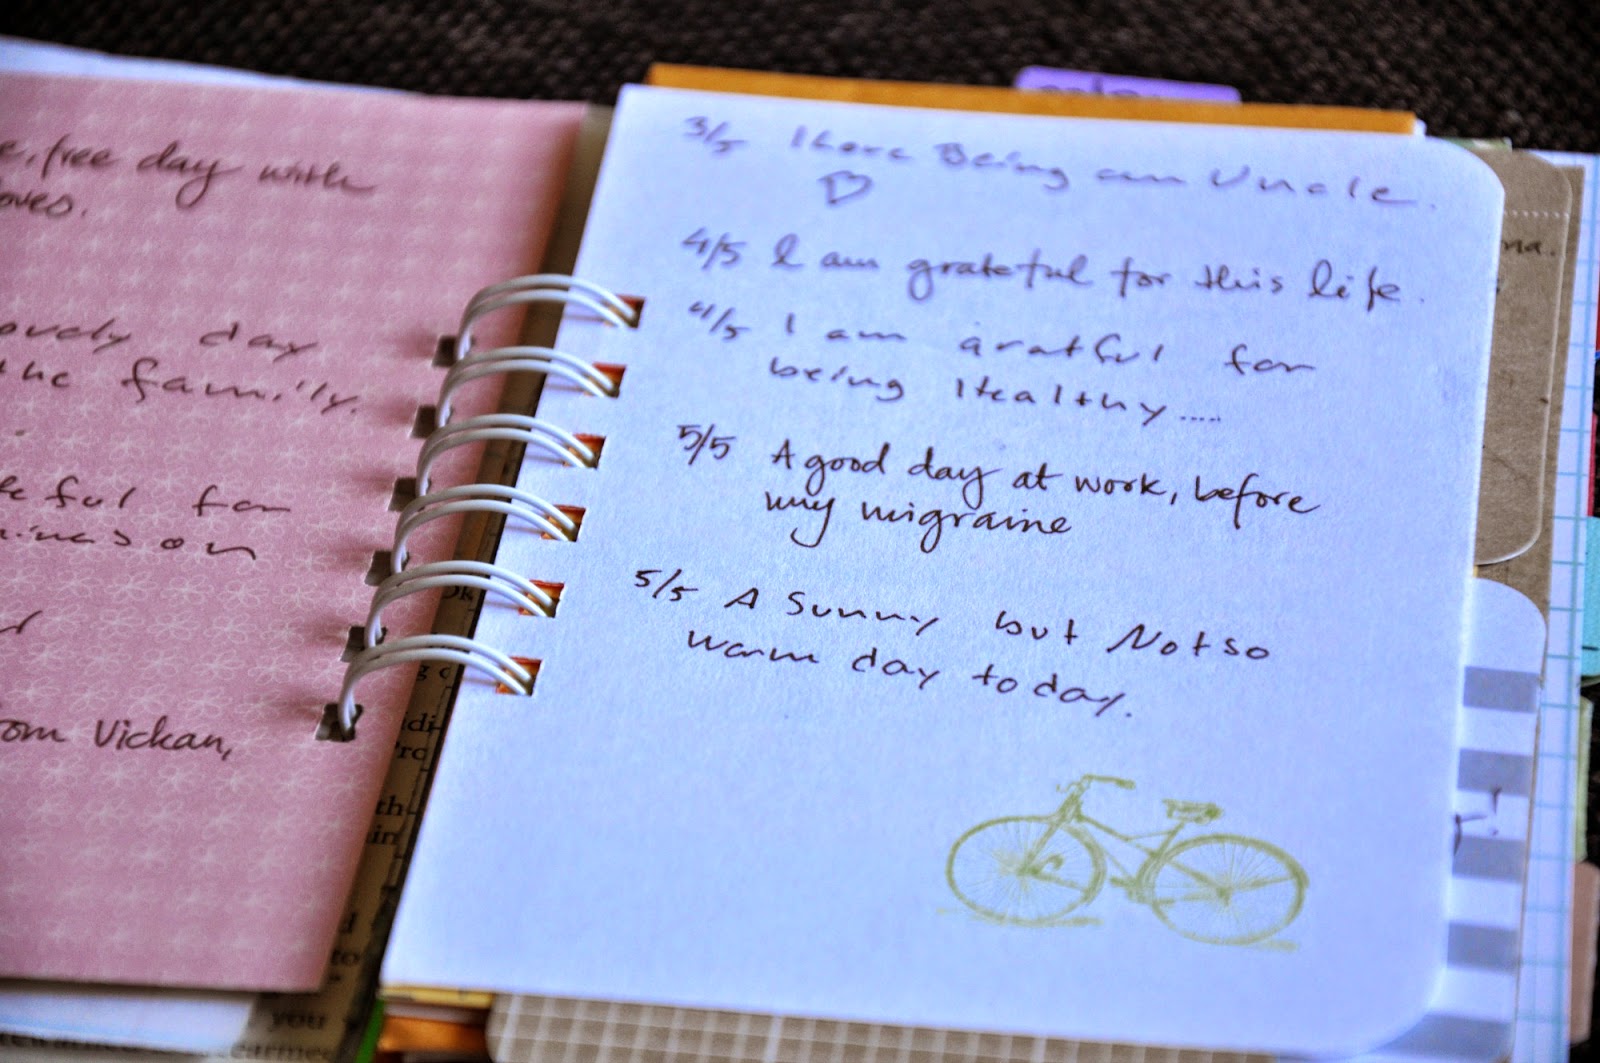 e, free day with
oves.
ovely day
the family.
ful for
on
from Vickan,
3/5 I Love Being an Uncle.
4/5 I am grateful for this life.
4/5 I am gratful for
being Healthy.....
5/5 A good day at work, before
my migraine
5/5 A Sunny but Not so
warm day today.
ma.
th
in
to
you